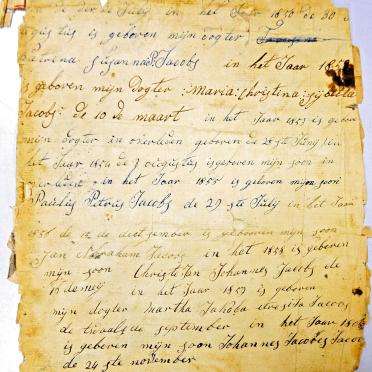 de der de Julij in het Jaar 1850 de 30
augustus is geboren mijn dogter
Susanna P. Jacobs in het Jaar 185
is geboren mijn Dogter Maria: Christina: Sijbella
Jacobs: de 10 de maart in het Jaar 1853 is gebore
mijn dogter in overleden geboren de 28 ste Junij in
het Jaar 1854 de 7 ougustus is geboren mijn soon in
in het Jaar 1855 is geboren mijn soon
Paulus Petrus Jacobs de 29 ste Julij in het Jaar
1856 de 12 de desesember is gebooren mijn soon
Jan Abraham Jacobs in het 1858 is geboren
mijn soon Christetian Johannes Jacobs de
de meij in het Jaar 1859 is geboren
mijn dogter Martha Jakoba Jacobs
de twaalfde september in het Jaar
is geboren mijn soon Johannes Jacobes Jacobs
de 24 ste november